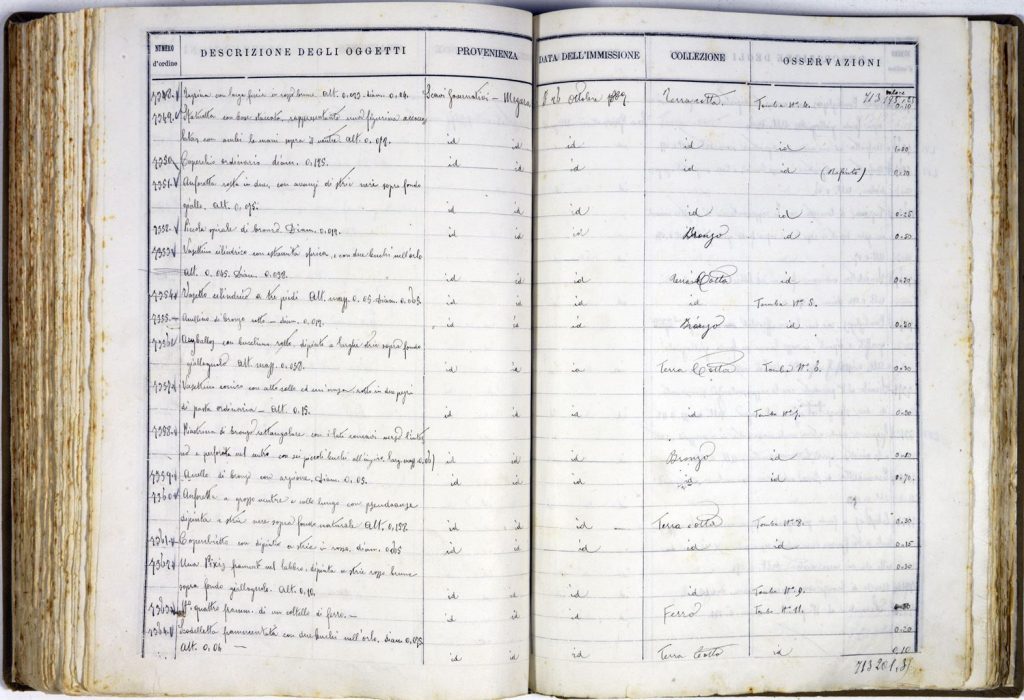 NUMERO d'ordine DESCRIZIONE DEGLI OGGETTI PROVENIENZA DATA DELL'IMMISSIONE COLLEZIONE OSSERVAZIONI
valore
7348 con larga fascia in rosso bruno. Alt. 0.093. diam. 0.04. Scavi Governativi – Megara 26 ottobre 1889. Terracotta. Tomba N° 4. 0.10
7349 Statuetta con base staccata, rappresentante figurina
con ambi le mani sopra il ventre Alt. 0.079. id id id id id
7350 Coperchio ordinario diam. 0.125. id id id id id 0.20
7351 Anforetta rotta in due, con avanzi di strie nere sopra fondo
giallo. Alt. 0.075. id id id id id 0.25
7352 Piccola spirale di bronzo Diam. 0.019. id id id Bronzo id 0.50
7353 Vasettino cilindrico con estremità sferica, e con due buchi nell'orlo
Alt. 0.045. Diam. 0.038. id id id Terra Cotta id 0.20
7354 Vasetto cilindrico a tre piedi Alt. magg. 0.05. diam. 0.065. id id id id Tomba N° 5.
7355 Anellino di bronzo rotto – diam. 0.019. id id id Bronzo id 0.20
7356 con buchino, rotto, dipinto a larghe strie sopra fondo
giallognolo Alt. magg. 0.058. id id id Terra Cotta Tomba N° 6. 0.30
7357 Vasettino conico con alto collo ed un'ansa, rotto in due pezzi
di pasta ordinaria – Alt. 0.15. id id id id Tomba N° 7. 0.50
7358 Piastrina di bronzo rettangolare con i lati concavi verso
e perforata nel centro con sei piccoli buchi id id id Bronzo id
7359 Anello di bronzo con arpione, diam. 0.05. id id id id id 0.70
7360 Anforetta a grosso ventre e collo lungo con pseudoanse
dipinta a strie nere sopra fondo naturale Alt. 0.158 id id id – Terra cotta Tomba N° 8. 0.30
7361 Coperchietto con dipinto a strie in rosso. diam. 0.065 id id id id id 0.25
7362 Una Pixis framment. nel labbro, dipinta a strie rosso brune 0.30
sopra fondo giallognolo. Alt. 0.10. id id id id Tomba N° 9.
7363 N° quattro framm. di un coltello di ferro. – id id id Ferro Tomba N° 11.
7364 Scodelletta frammentata con due buchi nell'orlo, diam 0.075 0.20
Alt. 0.04 – id id id Terra Cotta id 0.10